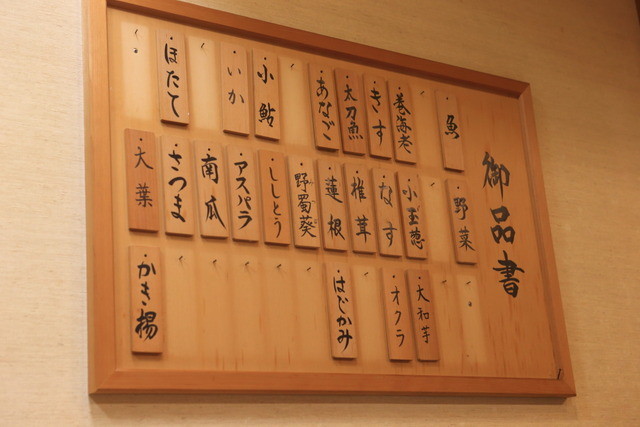 御品書
魚
巻海老
きす
太刀魚
あなご
小鮎
いか
ほたて
野菜
小玉葱
なす
椎茸
蓮根
野蜀葵
ししとう
アスパラ
南瓜
さつま
大葉
大和芋
オクラ
はじかみ
かき揚